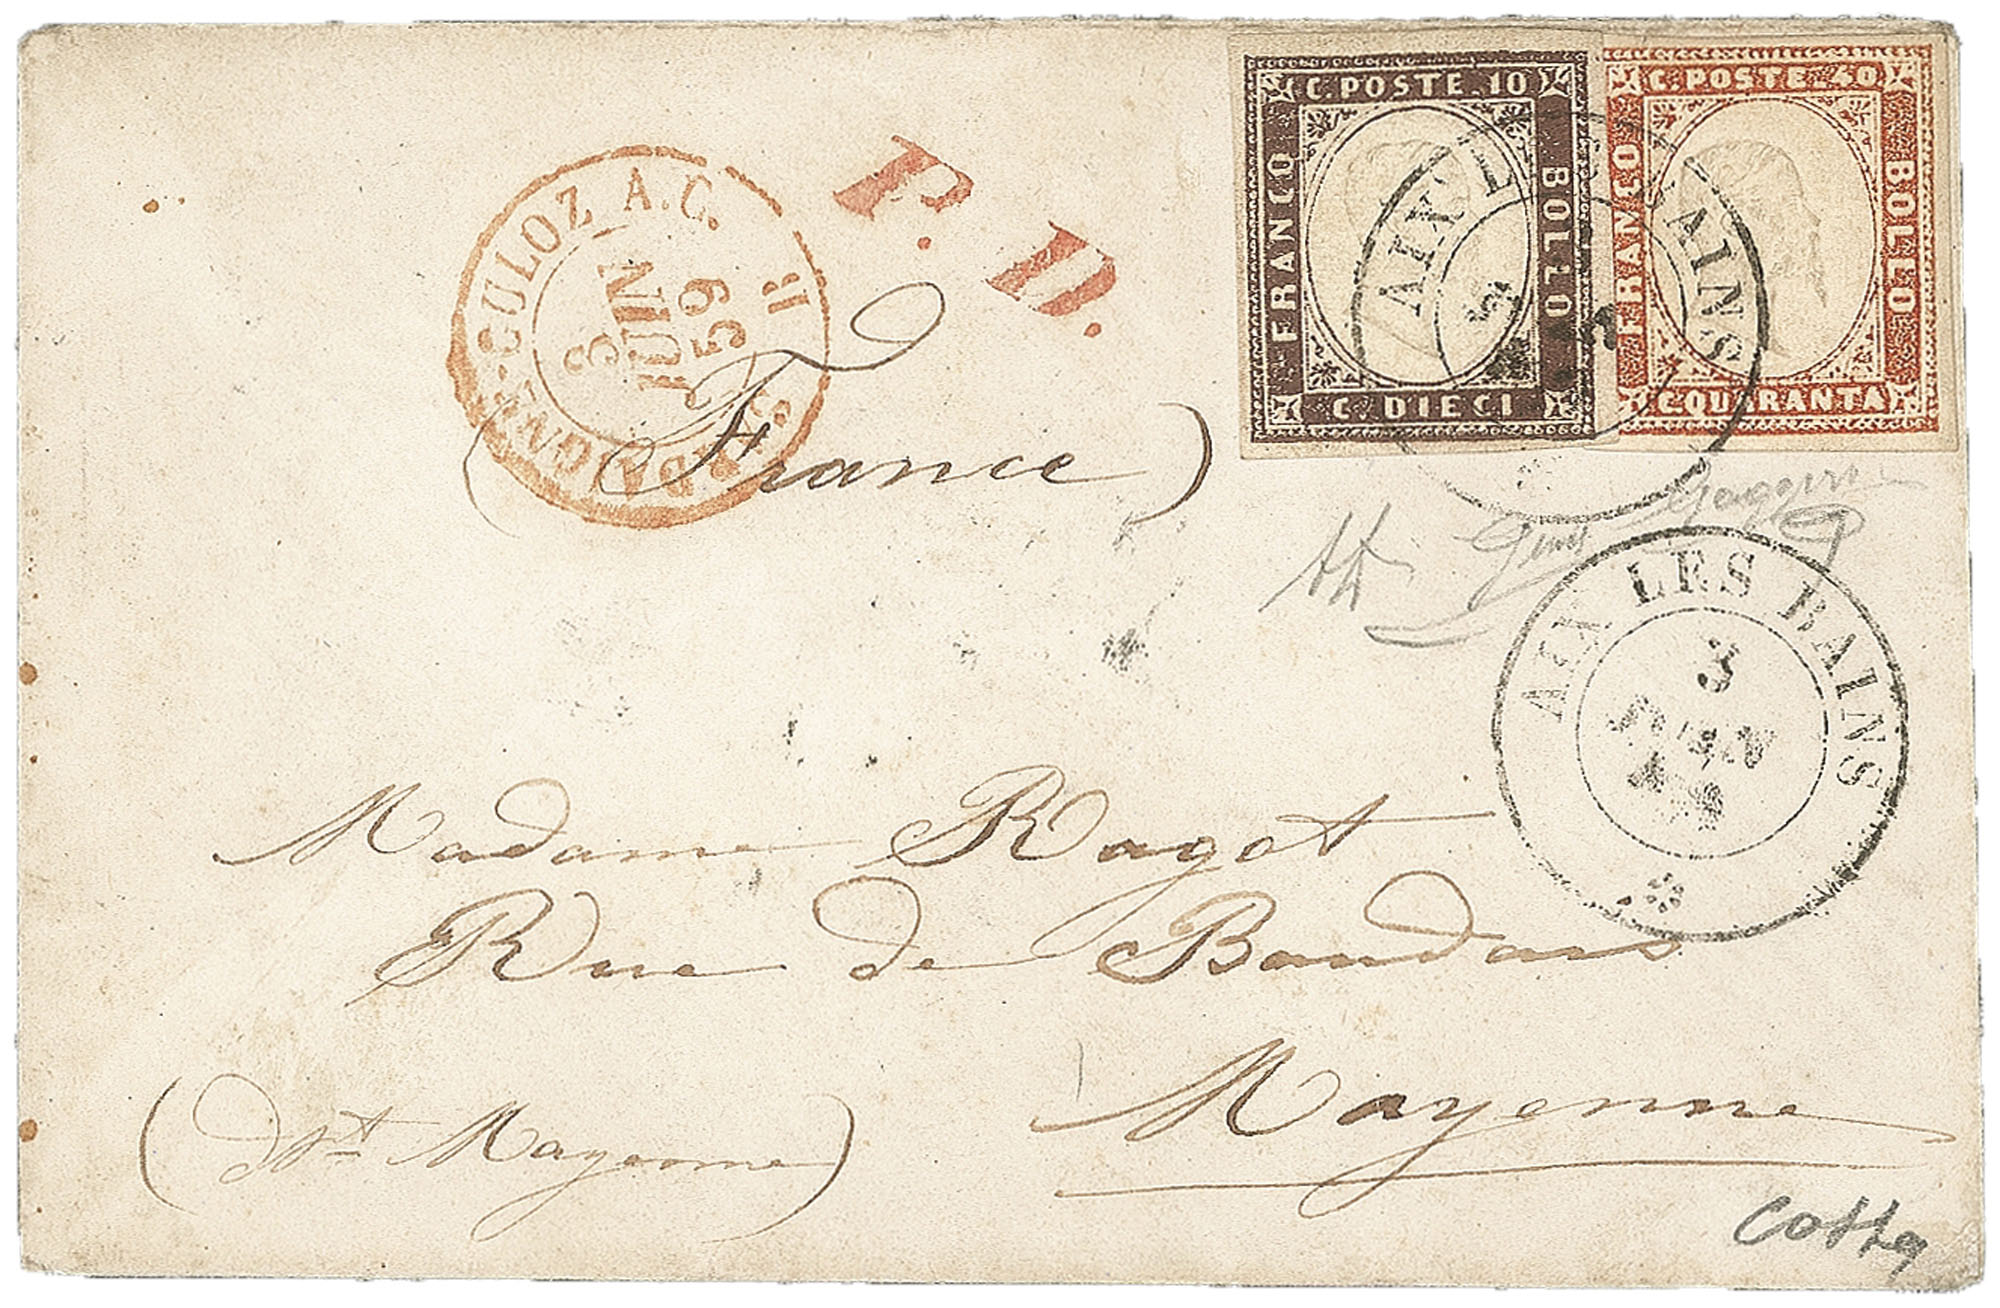 C. POSTE. 10
FRANCO
BOLLO
C. DIECI
C. POSTE. 40
FRANCO
BOLLO
C. QUARANTA
AIX LES BAINS
3
P. D.
CULOZ A.C.
3
JUIN
59
R
(France)
AIX LES BAINS
3
JUIN
Madame Ragot
Rue de Baudais
Mayenne
(dépt Mayenne)
Cotta